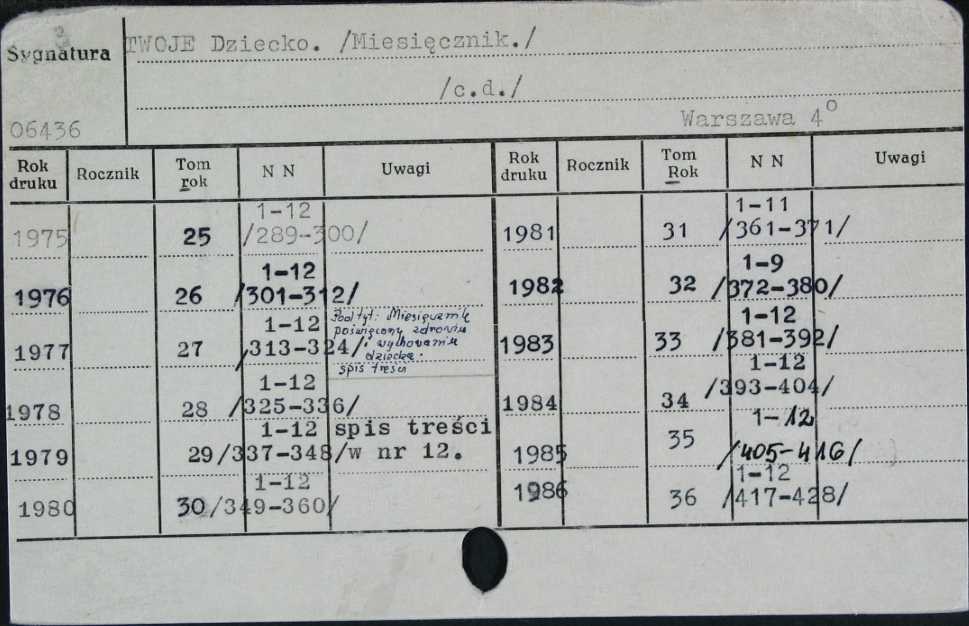 Sygnatura
TWOJE Dziecko. /Miesięcznik./
/c.d./
06436
Warszawa 4°
Rok druku Rocznik Tom rok N N Uwagi Rok druku Rocznik Tom Rok N N Uwagi
1975 25 1-12 /289-300/
1976 26 1-12 /301-312/
1977 27 1-12 /313-324/ Podtyt.: Miesięcznik
poświęcony zdrowiu
i wychowaniu
dziecka.
spis treści
1978 28 1-12 /325-336/
1979 29 1-12 /337-348/ spis treści
w nr 12.
1980 30 1-12 /349-360/
1981 31 1-11 /361-371/
1982 32 1-9 /372-380/
1983 33 1-12 /381-392/
1984 34 1-12 /393-404/
1985 35 1-12 /405-416/
1986 36 1-12 /417-428/